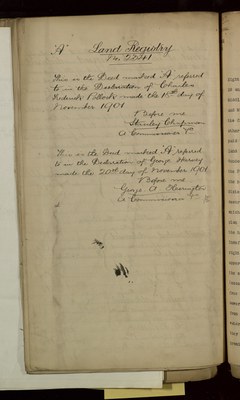 "A" Land Registry
No. 22341
This is the Deed marked A referred
to in the Declaration of Charles
Frederick made the 18th day of
November 1901
Before me
Stanley Chapman
A Commissioner &c
This is the Deed marked A referred
to in the Declaration of George
made the 20th day of November 1901
Before me
George A
A Commissioner &c